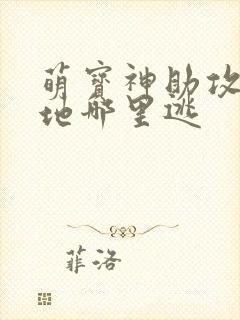 萌宝神助攻
地哪里逃
菲洛